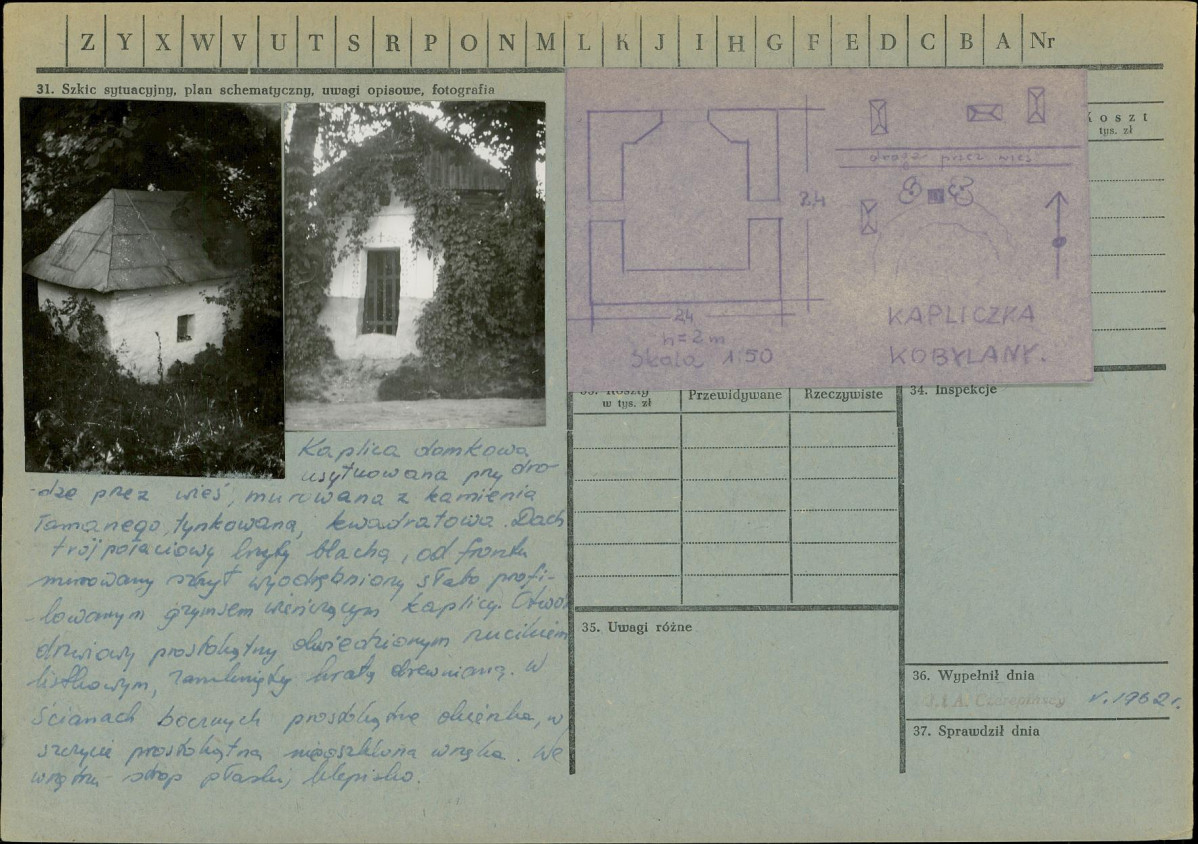 Z Y X W V U T S R P O N M L K J I H G F E D C B A Nr
31. Szkic sytuacyjny, plan schematyczny, uwagi opisowe, fotografia
Koszt
tys. zł
droga przez wieś
2,4
24
h=2m
Skala 1:50
KAPLICZKA
KOBYLANY.
33. Koszty
w tys. zł
Przewidywane
Rzeczywiste
34. Inspekcje
Kaplica domkowa
usytuowana przy dro-
-dze przez wieś, murowana z kamienia
łamanego, tynkowana, kwadratowa. Dach
trójpołaciowy kryty blachą, od frontu
murowany szczyt wyodrębniony słabo profi-
-lowanym gzymsem wieńczącym kaplicę. Otwór
drzwiowy prostokątny obwiedzionym
listkowym, zamknięty kratą drewnianą. W
ścianach bocznych prostokątne okienka, w
szczycie prostokątna nieoszklona wnęka. We
wnętrzu strop płaski, klepisko.
35. Uwagi różne
36. Wypełnił dnia
J. i A. Czerepińscy V. 1962 r.
37. Sprawdził dnia